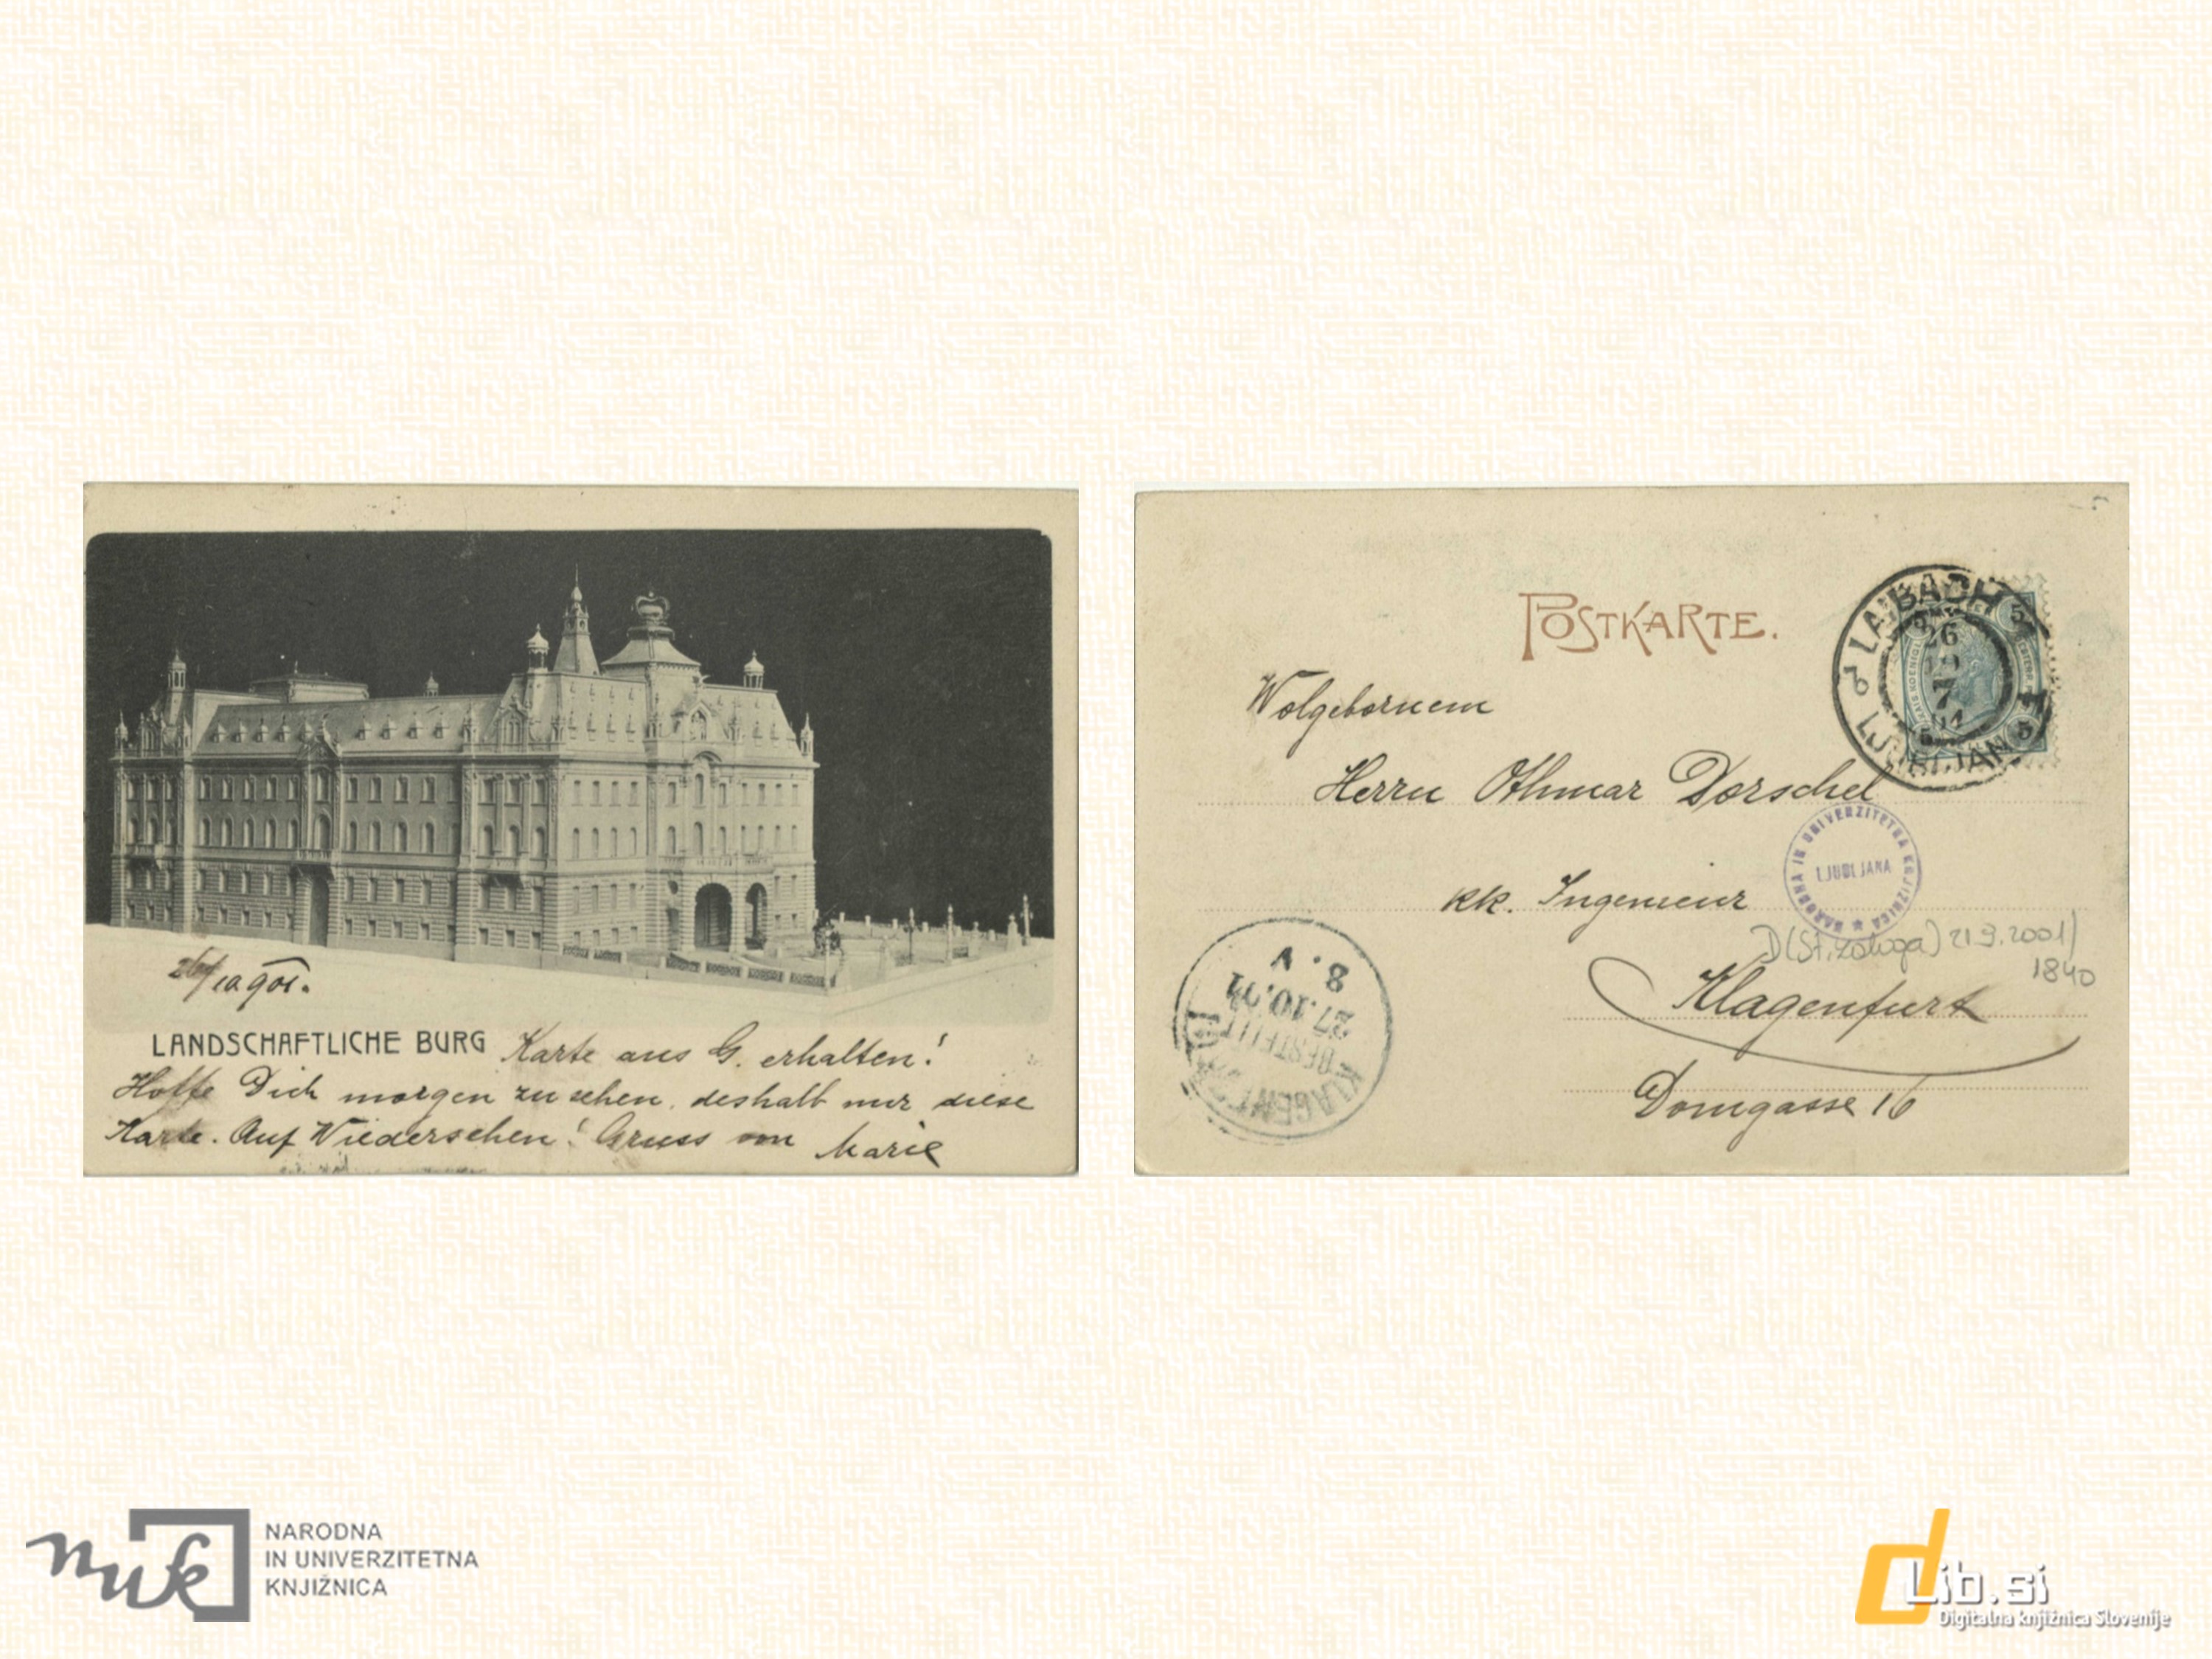 26/10 901.
LANDSCHAFTLICHE BURG Karte aus G. erhalten!
Hoffe Dich morgen zu sehen, deshalb nur diese
Karte. Auf Wiedersehen! Gruss von Marie
POSTKARTE.
LAIBACH
26
10
7
LJUBLJANA
5
5
5
Wolgebornem
Herrn Othmar Dorschel
kk. Ingenieur
NARODNA IN UNIVERZITETNA KNJIŽNICA
LJUBLJANA
D (St. zaloga) 21 9. 2001/
1840
Klagenfurt
Domgasse 16
KLAGENFURT
BESTELLT
27.10.01
8. V
nuk
NARODNA
IN UNIVERZITETNA
KNJIŽNICA
dLib.si
Digitalna knjižnica Slovenije